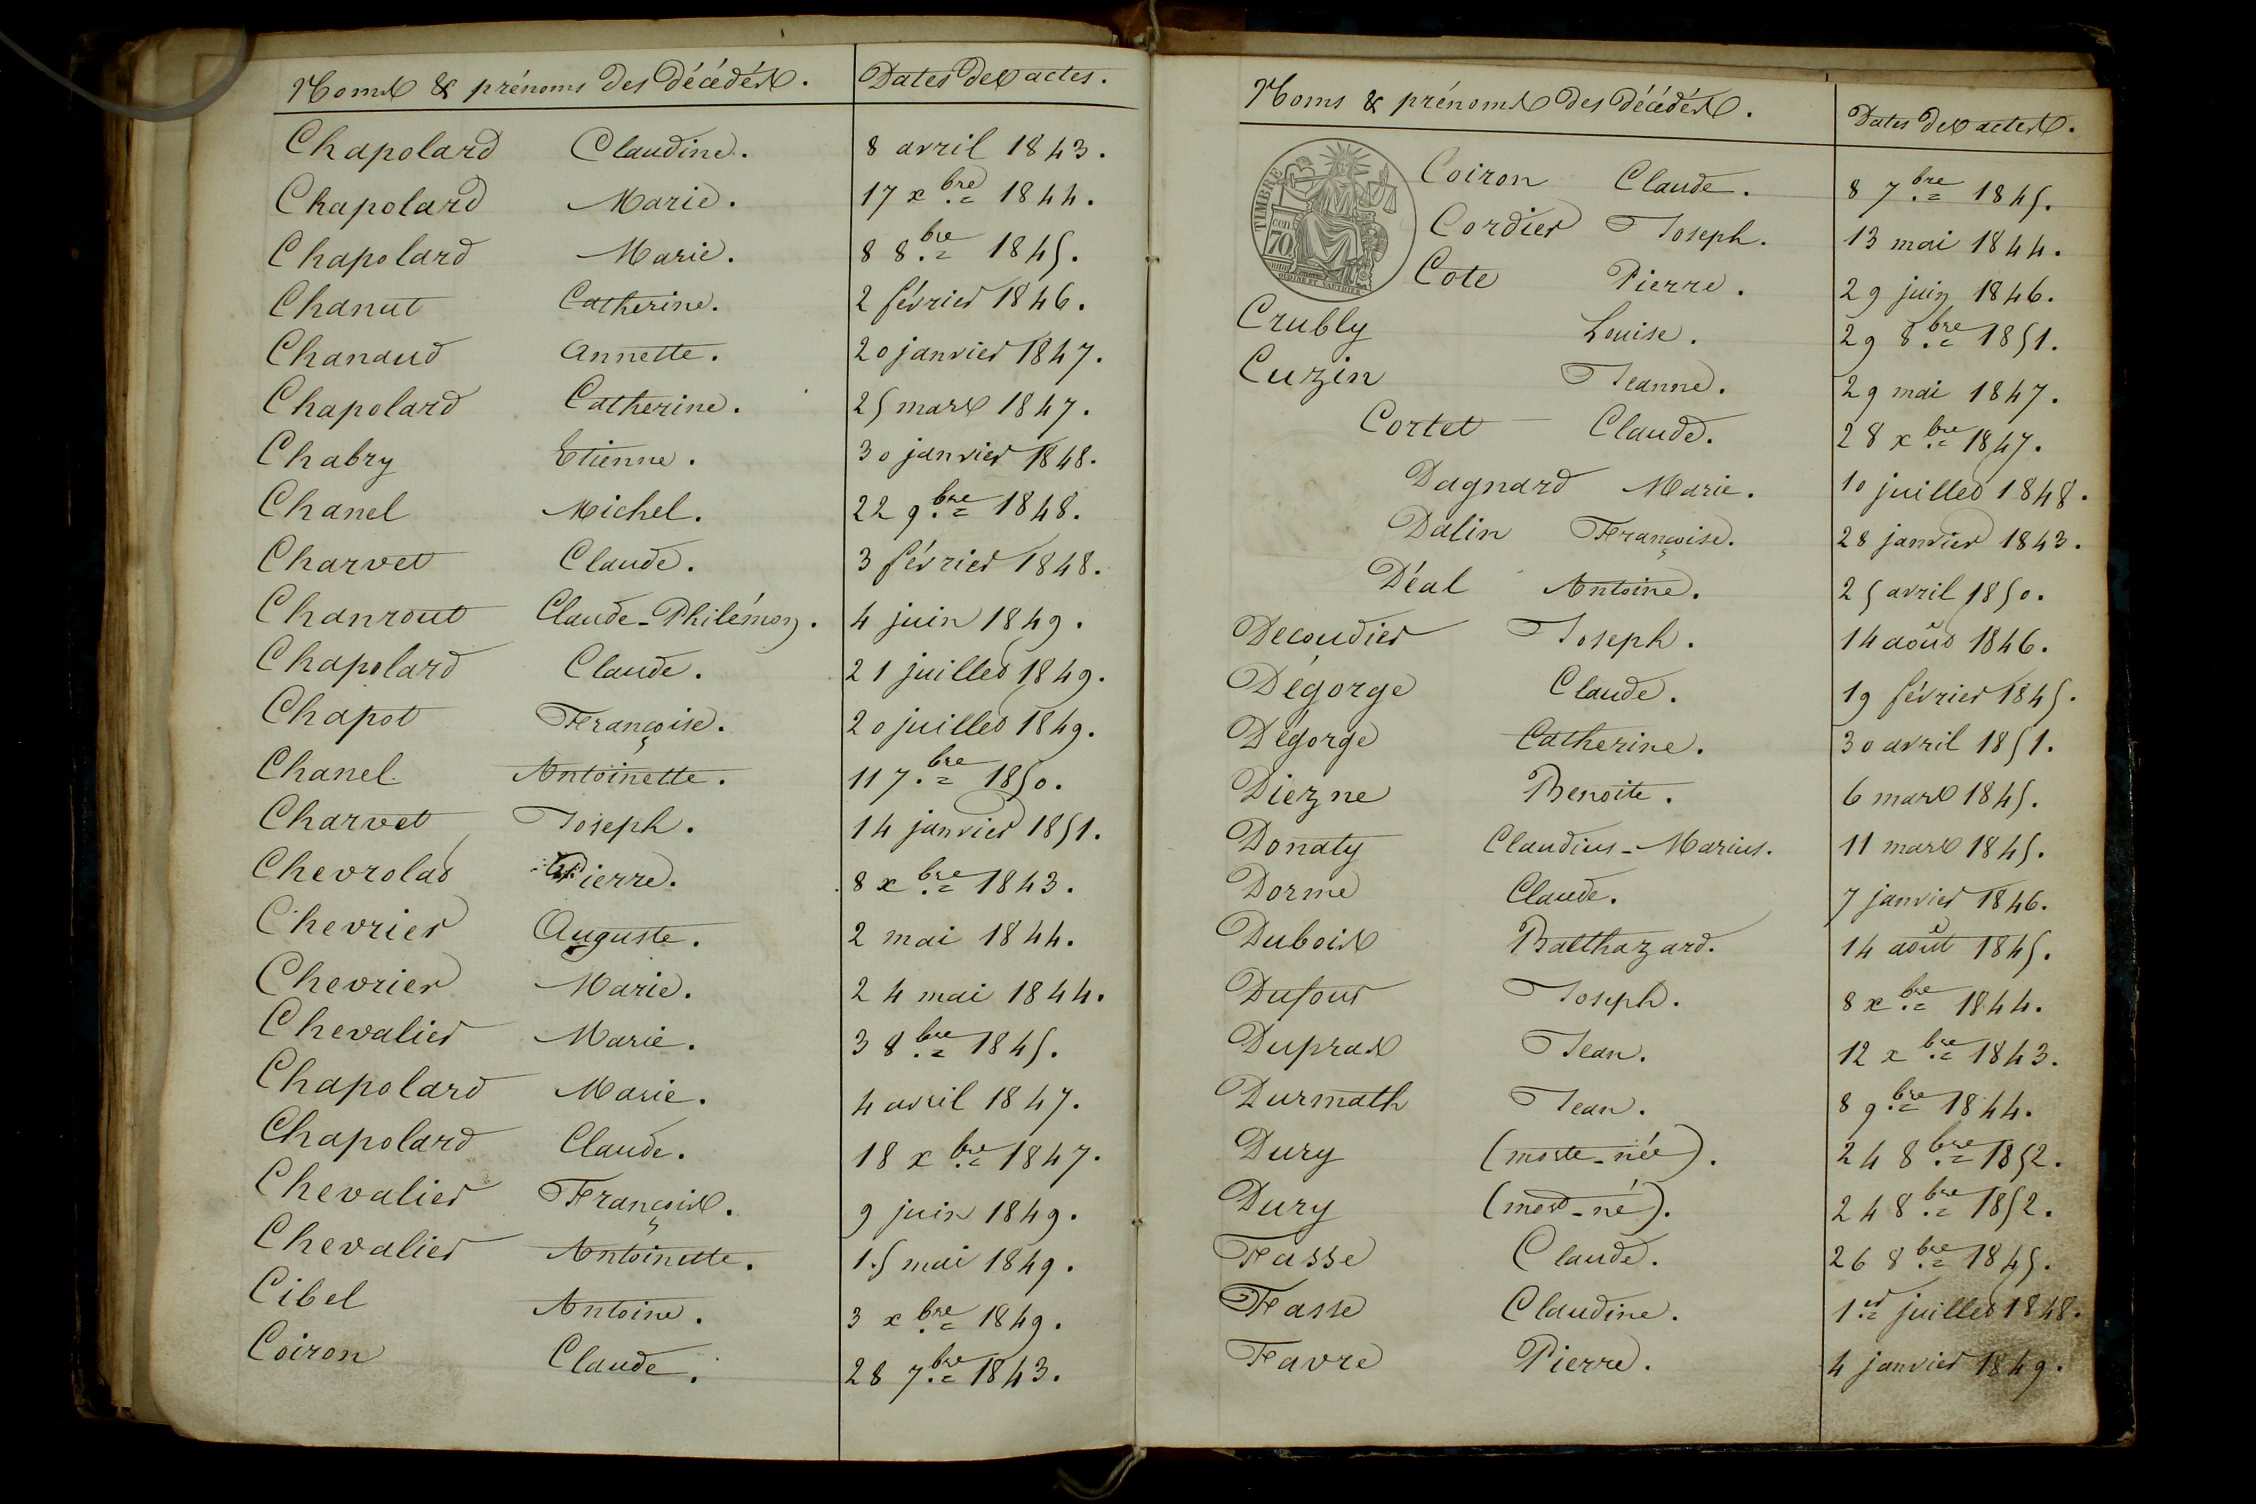 Noms & prénoms des décédés. Dates des actes.
Chapolard Claudine. 8 avril 1843.
Chapolard Marie. 17 xbre 1844.
Chapolard Marie. 8 8bre 1845.
Chanut Catherine. 2 février 1846.
Chanaud Annette. 20 janvier 1847.
Chapolard Catherine. 25 mars 1847.
Chabry Etienne. 30 janvier 1848.
Chanel Michel. 22 9bre 1848.
Charvet Claude. 3 février 1848.
Chanrout Claude-Philémon. 4 juin 1849.
Chapolard Claude. 21 juillet 1849.
Chapot Françoise. 20 juillet 1849.
Chanel Antoinette. 11 7bre 1850.
Charvet Joseph. 14 janvier 1851.
Chevrolat Pierre. 8 xbre 1843.
Chevrier Auguste. 2 mai 1844.
Chevrier Marie. 24 mai 1844.
Chevalier Marie. 3 8bre 1845.
Chapolard Marie. 4 avril 1847.
Chapolard Claude. 18 xbre 1847.
Chevalier François. 9 juin 1849.
Chevalier Antoinette. 15 mai 1849.
Cibel Antoine. 3 xbre 1849.
Coiron Claude. 28 7bre 1843.
Noms & prénoms des décédés. Dates des actes.
TIMBRE
70
Coiron Claude. 8 7bre 1845.
Cordier Joseph. 13 mai 1844.
Cote Pierre. 29 juin 1846.
Crubly Louise. 29 8bre 1851.
Cuzin Jeanne. 29 mai 1847.
Cortet Claude. 28 xbre 1847.
Dagnard Marie. 10 juillet 1848.
Dalin Françoise. 28 janvier 1843.
Déal Antoine. 25 avril 1850.
Decoudier Joseph. 14 août 1846.
Dégorge Claude. 19 février 1845.
Dégorge Catherine. 30 avril 1851.
Diezne Benoite. 6 mars 1845.
Donaty Claudius-Marius. 11 mars 1845.
Dorme Claude. 7 janvier 1846.
Dubois Balthazard. 14 août 1845.
Dufour Joseph. 8 xbre 1844.
Dupras Jean. 12 xbre 1843.
Durmath Jean. 8 9bre 1844.
Dury (morte-née). 24 8bre 1852.
Dury (mort-né). 24 8bre 1852.
Fasse Claude. 26 8bre 1845.
Fasse Claudine. 1er juillet 1848.
Favre Pierre. 4 janvier 1849.